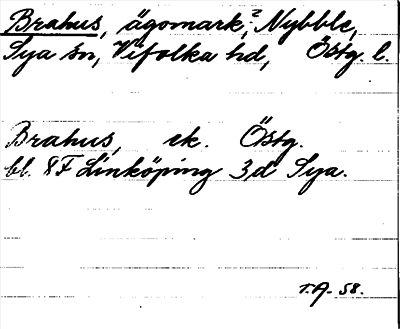 Brahus, ägomark, Nybble,
Sya sn, Vifolka hd, Östg. l.
Brahus, ek. Östg.
bl. 8F Linköping 3d Sya.
T.A. 58.